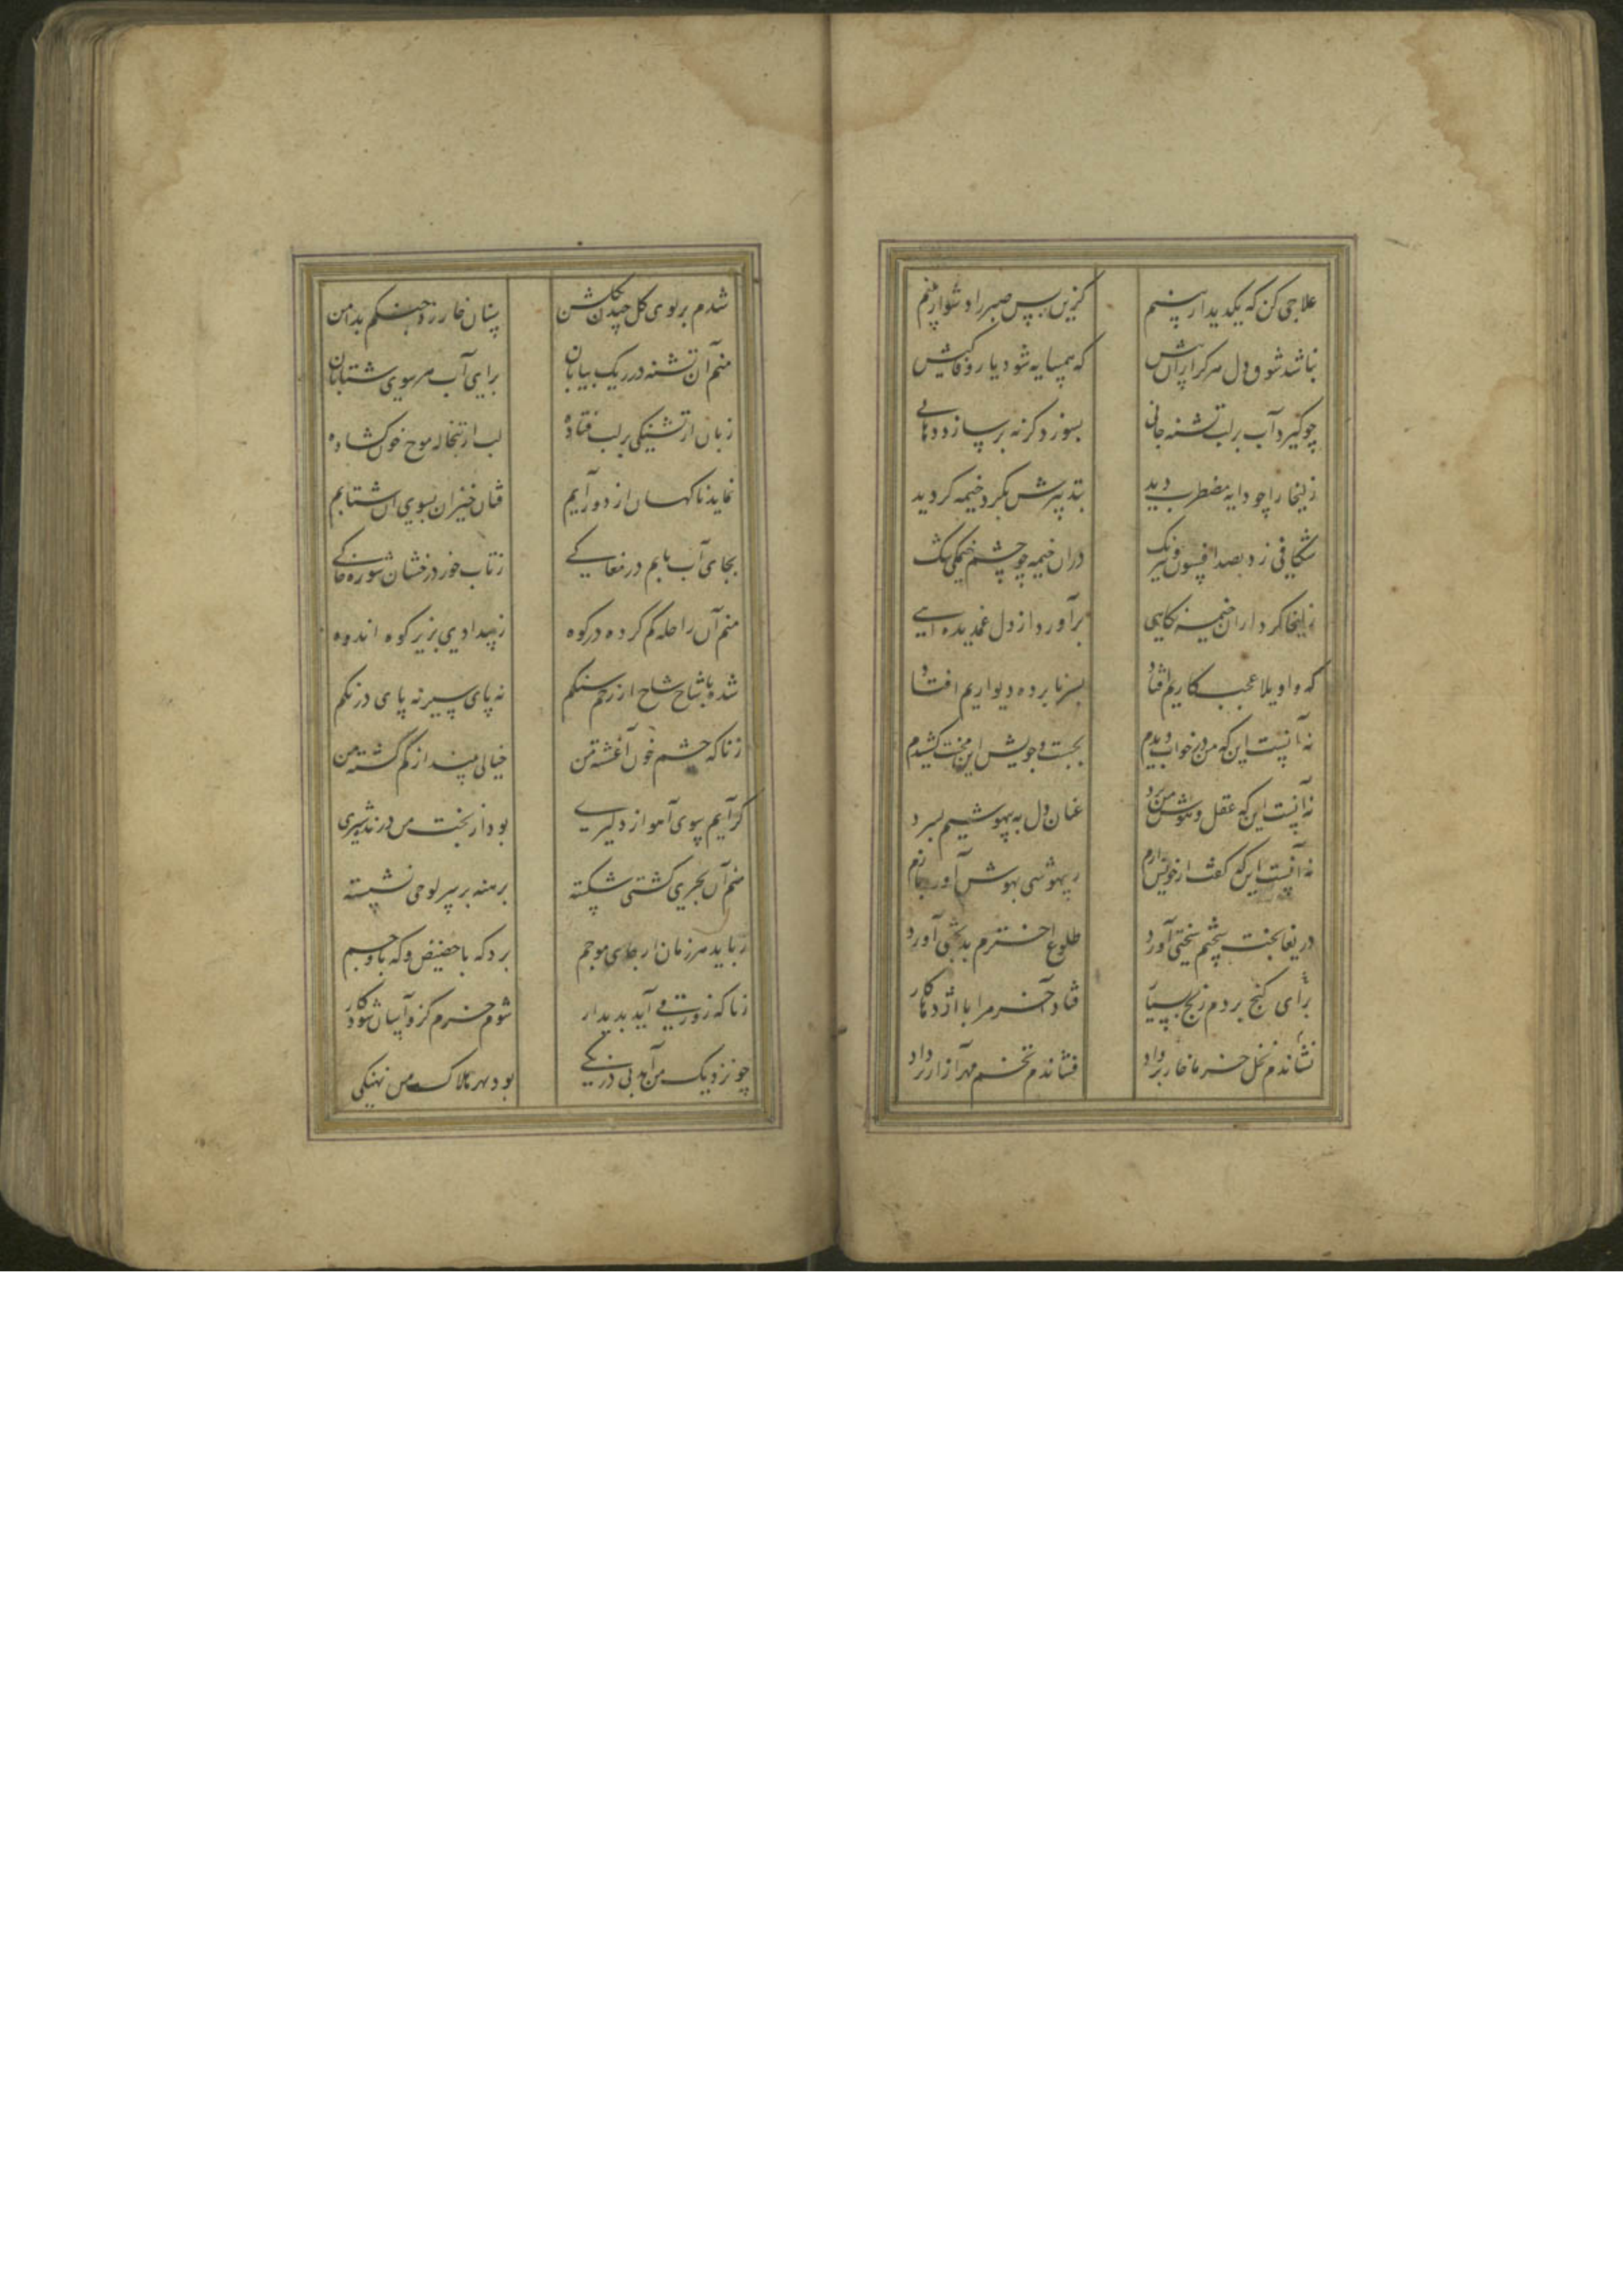 علاجی کن که یکدیدار بینم کزین پس صبر را دشوار بینم
نباشد شوق دل هرگز ازان بیش که همسایه شود یار وفاکیش
چو گیرد آب بر لب تشنه جانی بسوزد گر نه بر سازد دهانی
زلیخا را چو دایه مضطرب دید بتدبیرش بگرد خیمه گردید
شکافی زد بصد افسون و نیرنگ دران خیمه چو چشم خیمگی تنگ
زلیخا کرد ازان خیمه نگاهی برآورد از دل غمدیده آهی
که واویلا عجب کاریم افتاد بسر نابرده دیواریم افتاد
نه آنست این که من در خواب دیدم بجست و جویش این محنت کشیدم
نه آنست این که عقل و هوش من برد عنان دل به بیهوشیم بسپرد
نه آنست این که گفت از خویش رازم ز بیهوشی بهوش آورد بازم
دریغا بخت سستم سختی آورد طلوع اخترم بدبختی آورد
برای گنج بردم رنج بسیار فتاد آخر مرا با اژدها کار
نشاندم نخل خرما خار بر داد فشاندم تخم مهر آزار بر داد
شدم بر بوی گل چیدن بگلشن سنان خار زد چنگم بدامن
منم آن تشنه در ریگ بیابان برای آب هر سوی شتابان
زبان از تشنگی بر لب فتاده لب از تبخاله موج خون گشاده
نماید ناگهان از دور آبم فتان خیزان بسوی آن شتابم
بجای آب یابم در مغاکی ز تاب خور درخشان شوره خاکی
منم آن راحله گم کرده در کوه ز بیدادی بزیر کوه اندوه
شده پا شاخ شاخ از زخم سنگم نه پای سیر نه پای درنگم
زناگه چشم خون آغشته من خیالی بیند از گم گشته من
گر آیم سوی آهو از دلیری بود از بخت من درنده شیری
منم آن بحری کشتی شکسته برهنه بر سر لوحی نشسته
رباید هر زمان از جای موجم برد گه با حضیض و گه با وجم
زناگه زورقی آید پدیدار شوم خرم کزو آسان شود کار
چو نزدیک من آید بی درنگی بود بهر هلاک من نهنگی